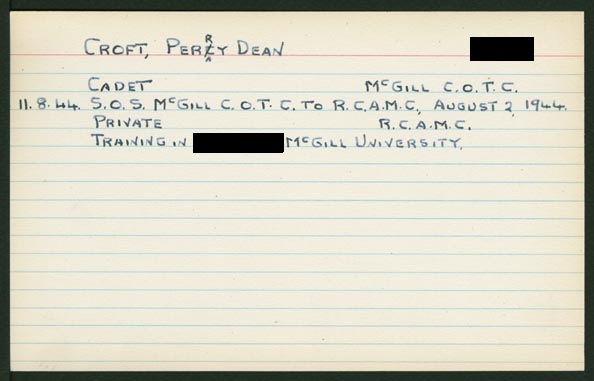 CROFT, PERRY DEAN
CADET McGILL C.O.T.C.
11.8.44. S.O.S. McGILL C.O.T.C. TO R.C.A.M.C., AUGUST 2, 1944.
PRIVATE R.C.A.M.C.
TRAINING IN McGILL UNIVERSITY.